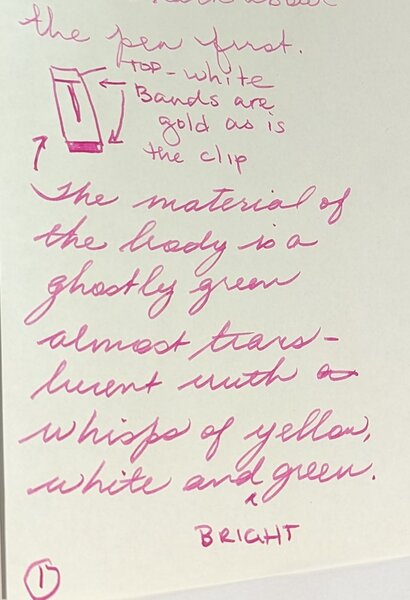 the pen first.
TOP - white
Bands are
gold as is
the clip
The material of
the body is a
ghostly green
almost trans-
lucent with a
whisps of yellow,
white and green.
^
BRIGHT
1